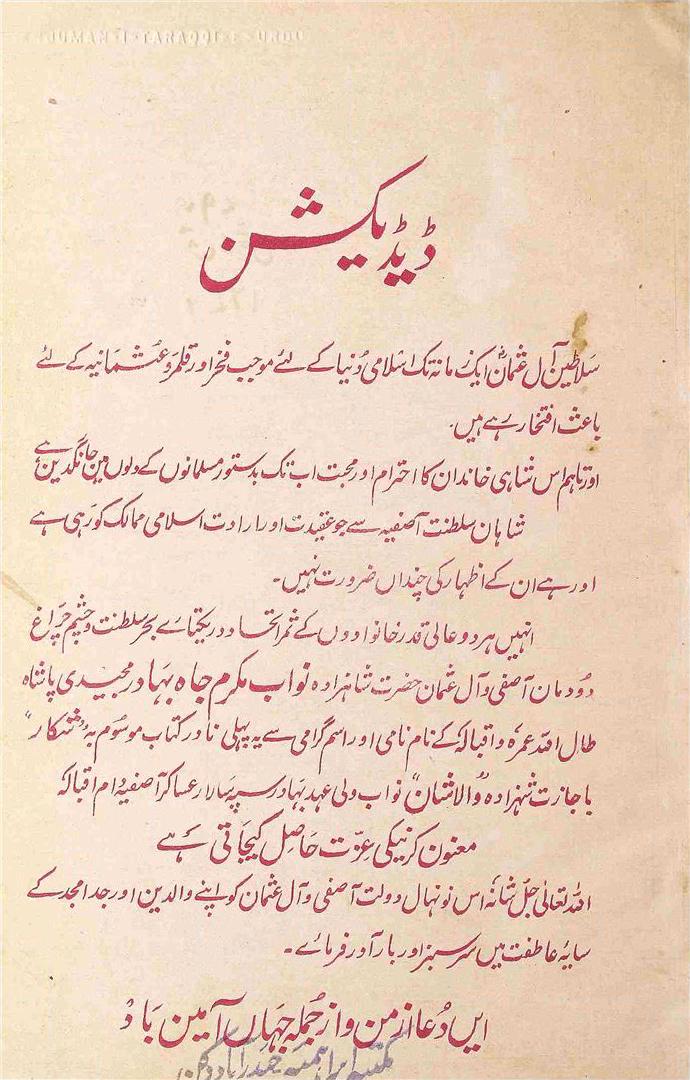 ANJUMAN-I-TARAQQI-E-URDU
ڈیڈیکیشن
سلاطین آل عثمان ایک زمانہ تک اسلامی دنیا کے لئے موجب فخر اور قلمرو عثمانیہ کے لئے
باعث افتخار رہے ہیں.
اور تاہم اس شاہی خاندان کا احترام اور محبت اب تک بدستور مسلمانوں کے دلوں میں جانگزین ہے
شاہان سلطنت آصفیہ سے جو عقیدت اور ارادت اسلامی ممالک کو رہی ہے
اور ہے ان کے اظہار کی چنداں ضرورت نہیں۔
انہیں ہر دو عالی قدر خانوادوں کے ثمر اتحاد در یکتاے بحر سلطنت و چشم چراغ
دودمان آصفی و آل عثمان حضرت شاہزادہ نواب مکرم جاہ بہادر مجیدی پاشاہ
طال اللہ عمرہٗ و اقبالہٗ کے نام نامی اور اسم گرامی سے یہ پہلی نادر کتاب موسوم بہ "شکار"
باجازت شہزادہ "والاشان" نواب ولی عہد بہادر سپہ سالار عساکر آصفیہ دام اقبالہٗ
معنون کرنیکی عزت حاصل کیجاتی ہے
اللہ تعالیٰ جل شانہٗ اس نونہال دولت آصفی و آل عثمان کو اپنے والدین اور جد امجد کے
سایۂ عاطفت میں سرسبز اور بارآور فرمائے۔
ایں دعا از من و از جملہ جہاں آمین باد
مکتبہ ابراہیمیہ حیدرآباد دکن